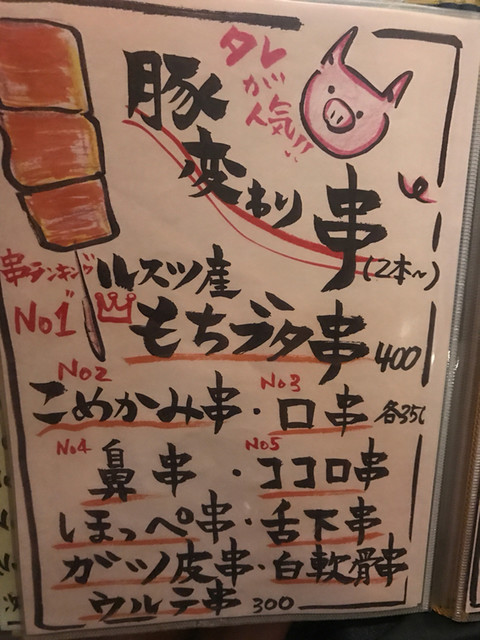 タレ
が
人気!!
豚
変わり
串
(2本〜)
串ランキング
No1
ルスツ産
もちブタ串 400
No2
No3
こめかみ串・口串 各350
No4
No5
鼻串・ココロ串
ほっぺ串・舌下串
ガツ皮串・白軟骨串
ウルテ串 300